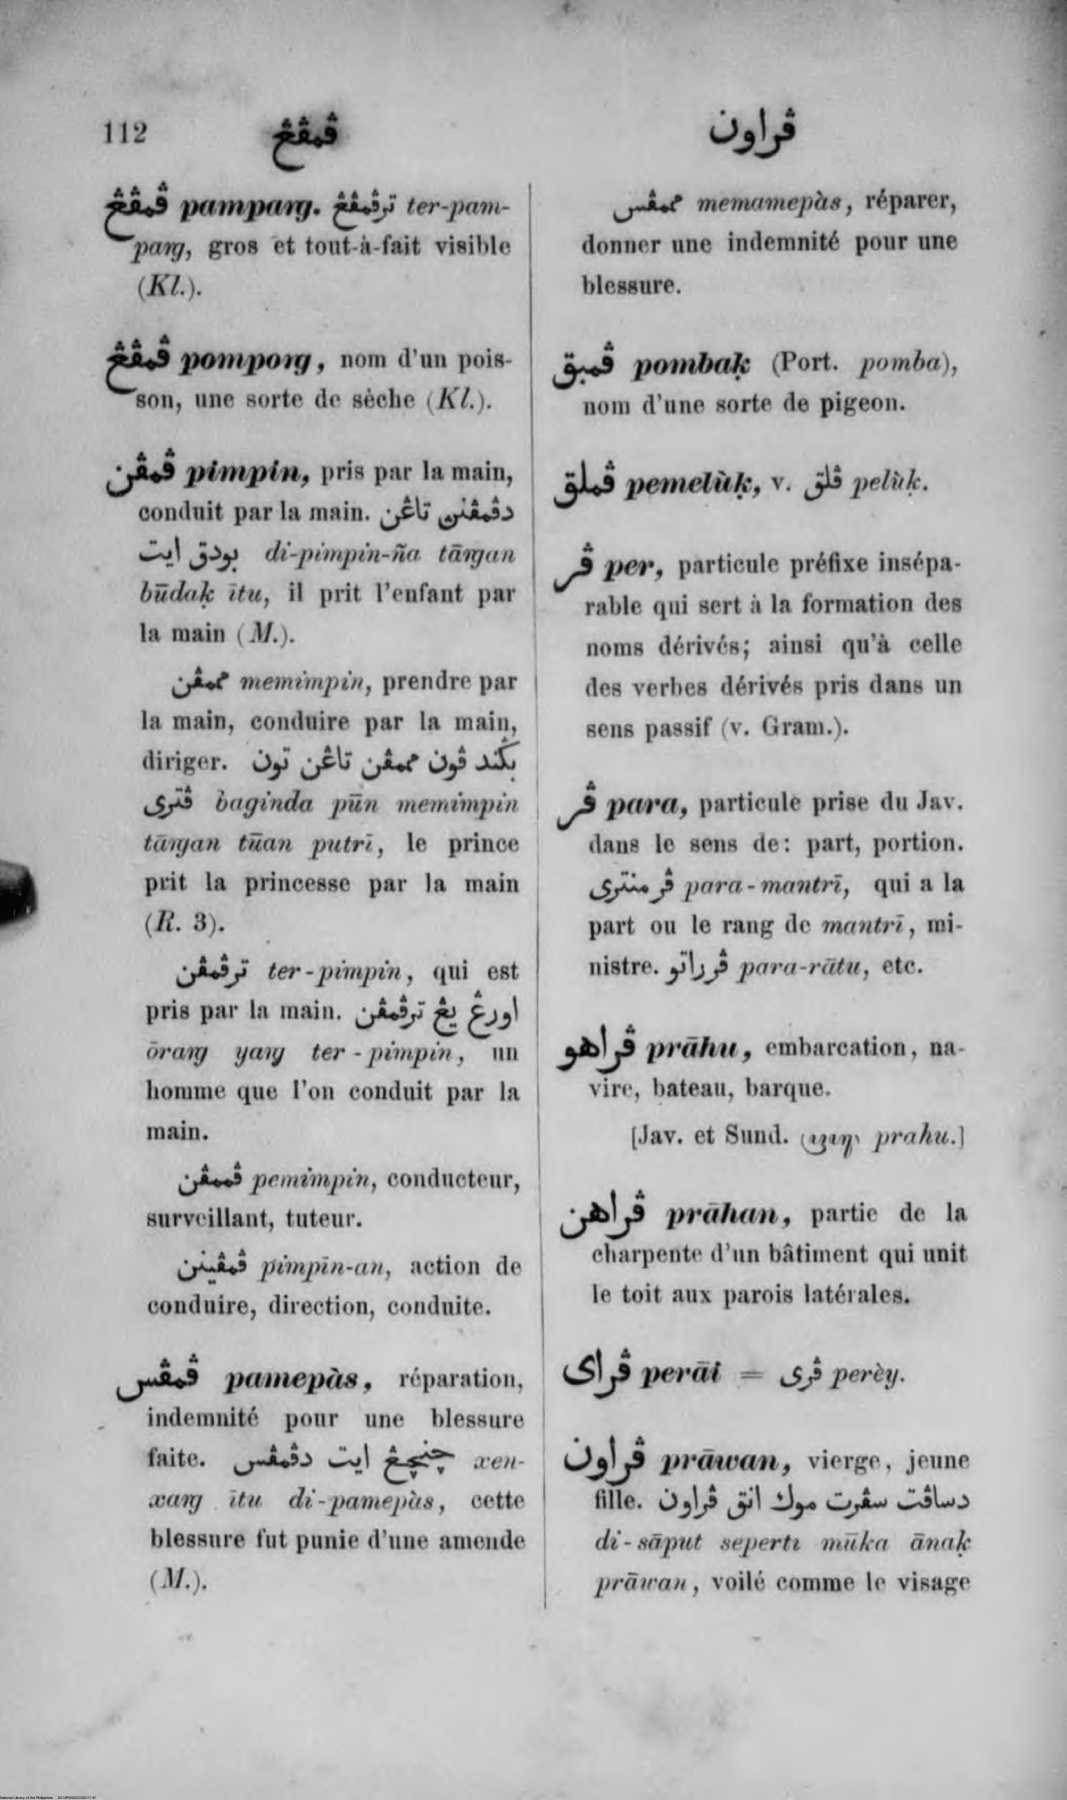 112
ڤمڤڠ
ڤراون
ڤمڤڠ pamparg. ترڤمڤڠ ter-pam-
parg, gros et tout-à-fait visible
(Kl.).
ڤمڤڠ pomporg, nom d'un pois-
son, une sorte de sèche (Kl.).
ڤمڤن pimpin, pris par la main,
conduit par la main. دڤمڤنڽ تاڠن
بودق ايت di-pimpin-ña tārgan
būdaḳ ītu, il prit l'enfant par
la main (M.).
ممڤن memimpin, prendre par
la main, conduire par la main,
diriger. بڬند ڤون ممڤن تاڠن تون
ڤتري baginda pūn memimpin
tārgan tūan putrī, le prince
prit la princesse par la main
(R. 3).
ترڤمڤن ter-pimpin, qui est
pris par la main. اورڠ يڠ ترڤمڤن
ōrarg yarg ter-pimpin, un
homme que l'on conduit par la
main.
ڤممڤن pemimpin, conducteur,
surveillant, tuteur.
ڤمڤينن pimpīn-an, action de
conduire, direction, conduite.
ڤمڤس pamepàs, réparation,
indemnité pour une blessure
faite. چنچڠ ايت دڤمڤس xen-
xarg ītu di-pamepàs, cette
blessure fut punie d'une amende
(M.).
ممڤس memamepàs, réparer,
donner une indemnité pour une
blessure.
ڤمبق pombaḳ (Port. pomba),
nom d'une sorte de pigeon.
ڤملق pemelùḳ, v. ڤلق pelùḳ.
ڤر per, particule préfixe insépa-
rable qui sert à la formation des
noms dérivés; ainsi qu'à celle
des verbes dérivés pris dans un
sens passif (v. Gram.).
ڤر para, particule prise du Jav.
dans le sens de: part, portion.
ڤر منتري para-mantrī, qui a la
part ou le rang de mantrī, mi-
nistre. ڤرراتو para-rātu, etc.
ڤراهو prāhu, embarcation, na-
vire, bateau, barque.
[Jav. et Sund. prahu.]
ڤراهن prāhan, partie de la
charpente d'un bâtiment qui unit
le toit aux parois latérales.
ڤراي perāi = ڤري perèy.
ڤراون prāwan, vierge, jeune
fille. دساڤت سڤرت موك انق ڤراون
di-sāput seperti mūka ānaḳ
prāwan, voilé comme le visage